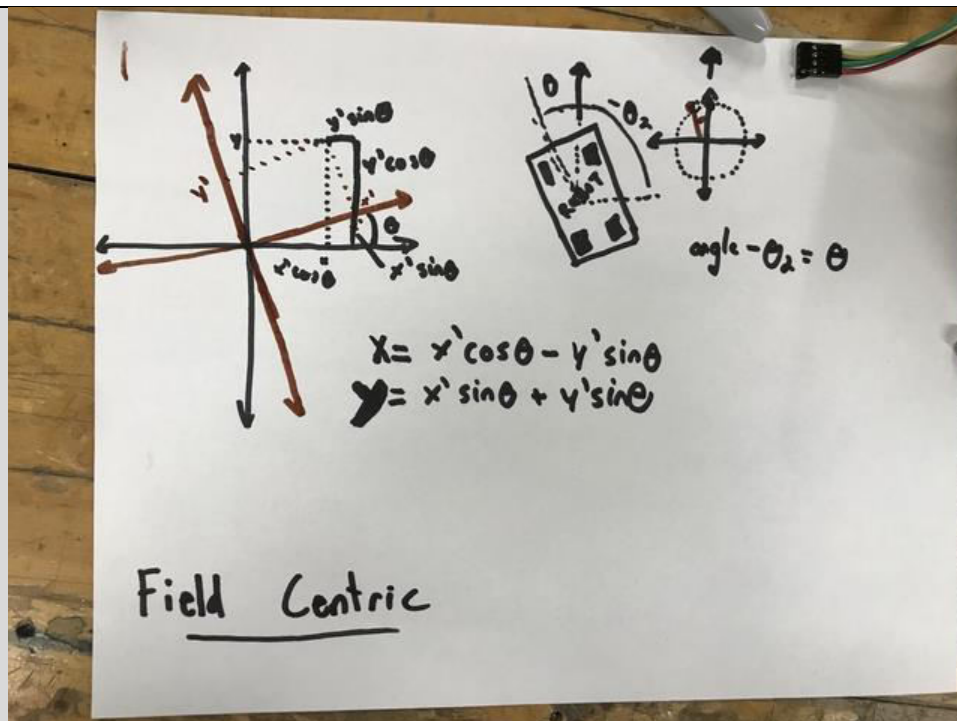 y'sinθ
y
y'cosθ
y'
x'
θ
x'cosθ
x'sinθ
θ
-θ₂
ROBOT
angle - θ₂ = θ
x = x'cosθ - y'sinθ
y = x'sinθ + y'sinθ
Field Centric